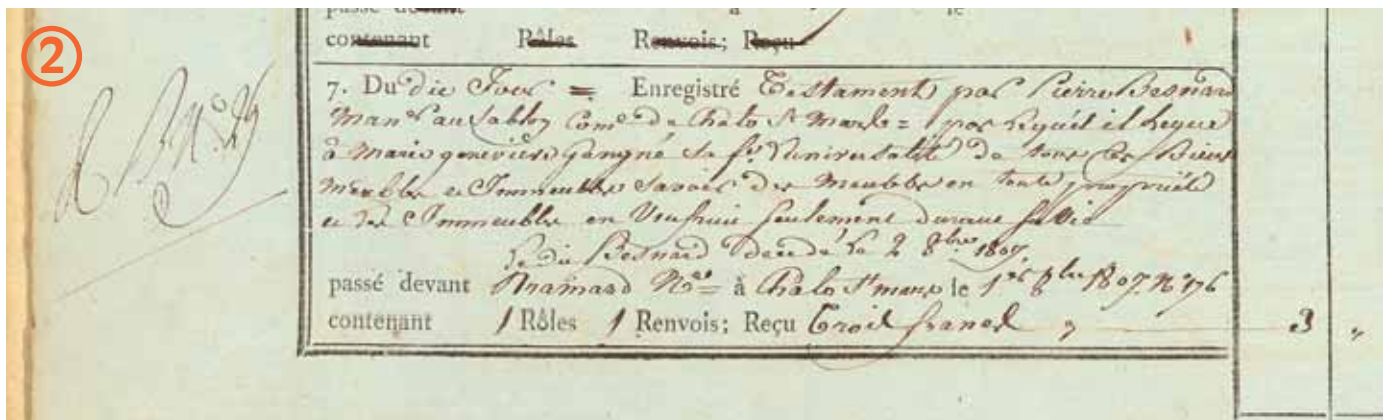 ②
passé devant à le
contenant Rôles Renvois; Reçu
7. Du dit Jour = Enregistré Testament par Pierre Besnard
Man.er au Sablon Com.e de Chalo St Mars = par lequel il legue
à Marie genevieve gangné Sa f.e l'universalité de tous Ses Biens
Meubles et Immeubles Savoir des Meubles en toute propriété
et des Immeubles en Usufruit Seulement durant Sa Vie
Le dit Besnard décédé le 2 8bre 1807
passé devant Bramard No.re à Chalo St mars le 1er 8bre 1807. N° 176
contenant 1 Rôles 1 Renvois; Reçu Trois francs 3 "